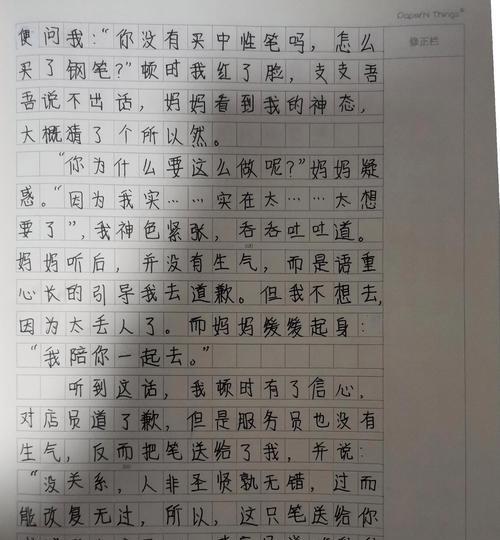 Paperhi Things
修正栏
便问我：“你没有买中性笔吗，怎么
买了钢笔？”顿时我红了脸，支支吾
吾说不出话，妈妈看到我的神态，
大概猜了个所以然。
“你为什么要这么做呢？”妈妈疑
惑。“因为我实……实在太……太想
要了”，我神色紧张，吞吞吐吐道。
妈妈听后，并没有生气，而是语重
心长的引导我去道歉。但我不想去，
因为太丢人了。而妈妈缓缓起身：
“我陪你一起去。”
听到这话，我顿时有了信心，
对店员道了歉，但是服务员也没有
生气，反而把笔送给了我，并说：
“没关系，人非圣贤孰无错，过而
能改复无过，所以，这只笔送给你